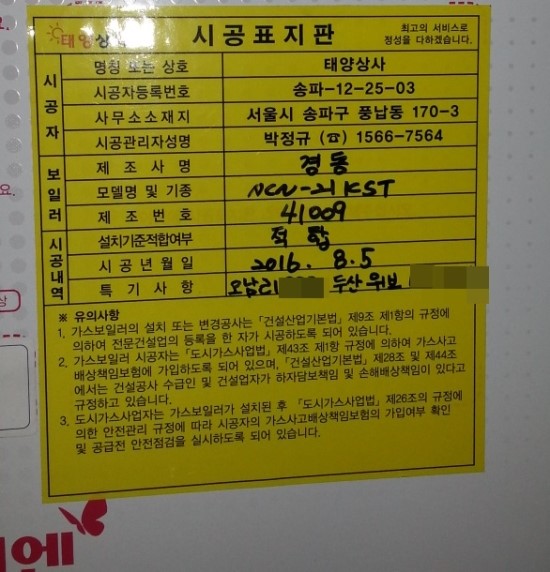 태양상사 시공표지판 최고의 서비스로
정성을 다하겠습니다.
시공자
명칭 또는 상호 태양상사
시공자등록번호 송파-12-25-03
사무소소재지 서울시 송파구 풍납동 170-3
시공관리자성명 박정규 (☎) 1566-7564
보일러
제조사명 경동
모델명 및 기종 NCN-21KST
제조번호 41009
시공내역
설치기준적합여부 적합
시공년월일 2016. 8.5
특기사항 오남리 두산위브
※ 유의사항
1. 가스보일러의 설치 또는 변경공사는 「건설산업기본법」제9조 제1항의 규정에
의하여 전문건설업의 등록을 한 자가 시공하도록 되어 있습니다.
2. 가스보일러 시공자는 「도시가스사업법」제43조 제1항 규정에 의하여 가스사고
배상책임보험에 가입하도록 되어 있으며, 「건설산업기본법」제28조 및 제44조
에서는 건설공사 수급인 및 건설업자가 하자담보책임 및 손해배상책임이 있다고
규정하고 있습니다.
3. 도시가스사업자는 가스보일러가 설치된 후 「도시가스사업법」제26조의 규정에
의한 안전관리 규정에 따라 시공자의 가스사고배상책임보험의 가입여부 확인
및 공급전 안전점검을 실시하도록 되어 있습니다.